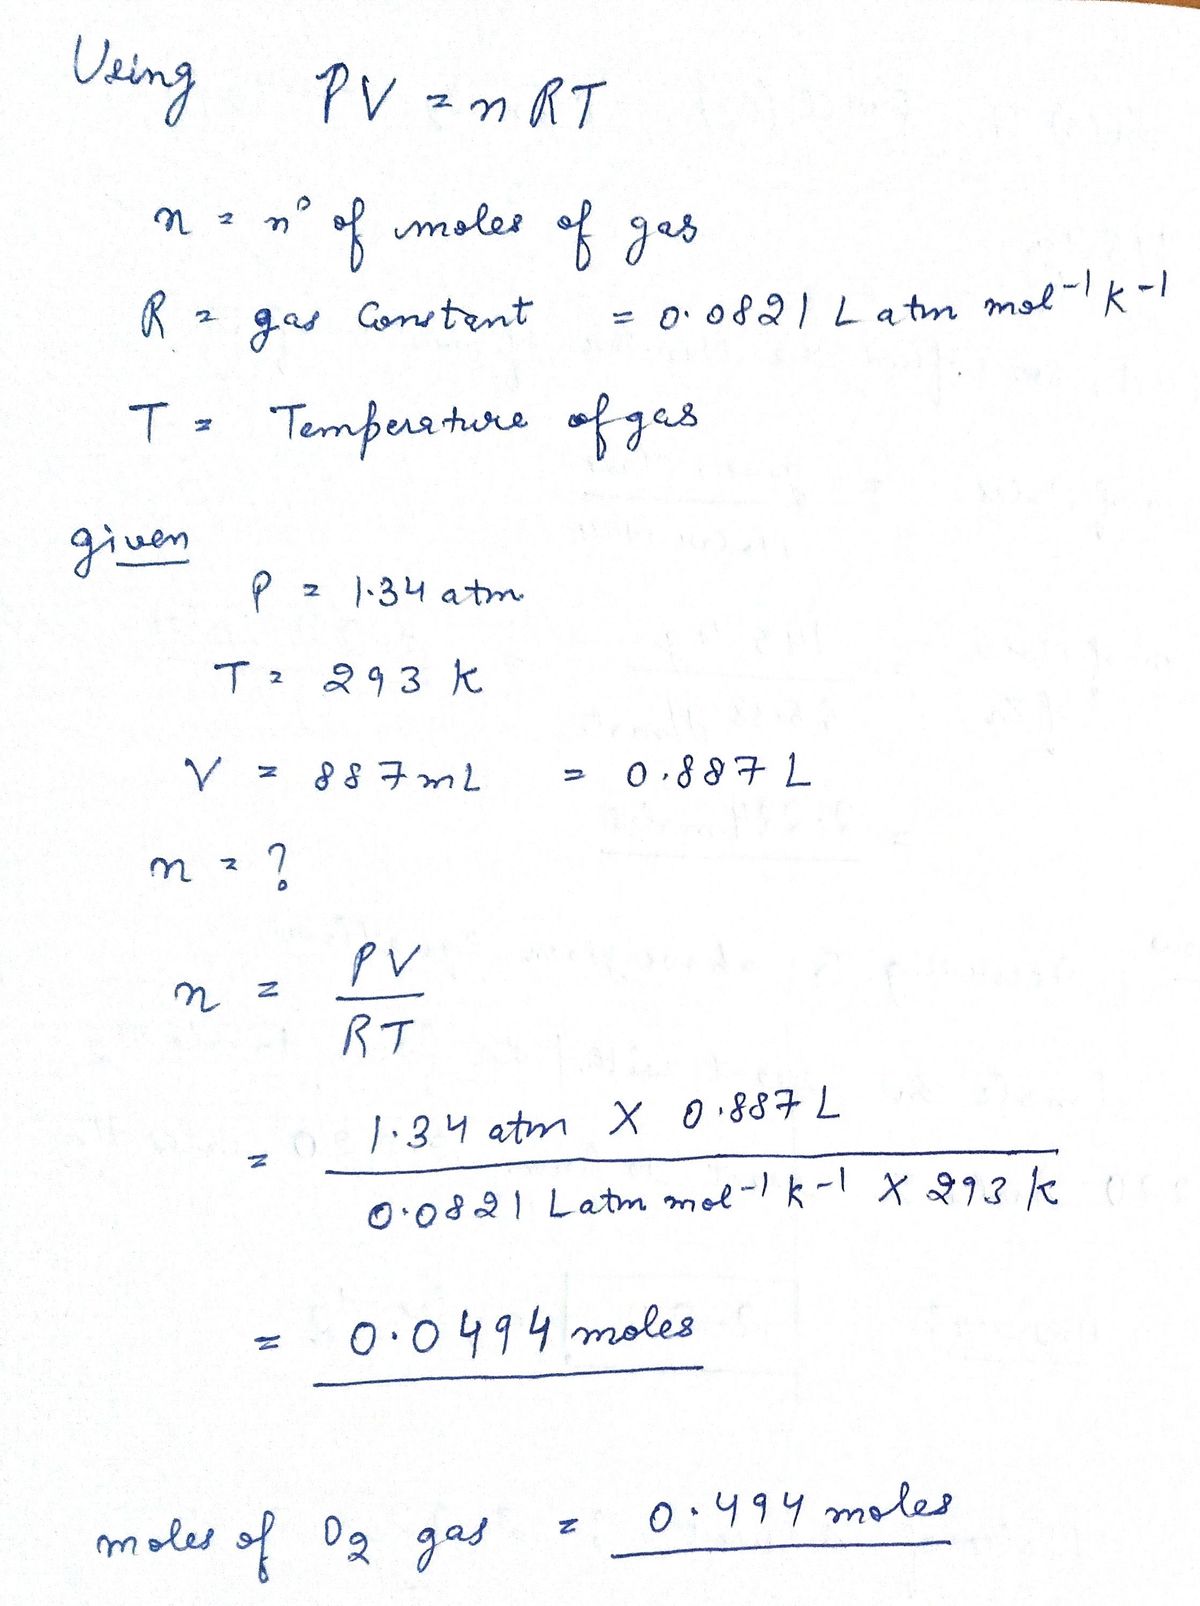 Using PV = nRT
n = nº of moles of gas
R = gas Constant = 0.0821 L atm mol⁻¹ k⁻¹
T = Temperature of gas
given
P = 1.34 atm
T = 293 k
V = 887 mL = 0.887 L
n = ?
n = PV
RT
= 1.34 atm X 0.887 L
0.0821 L atm mol⁻¹ k⁻¹ X 293 k
= 0.0494 moles
moles of O₂ gas = 0.494 moles